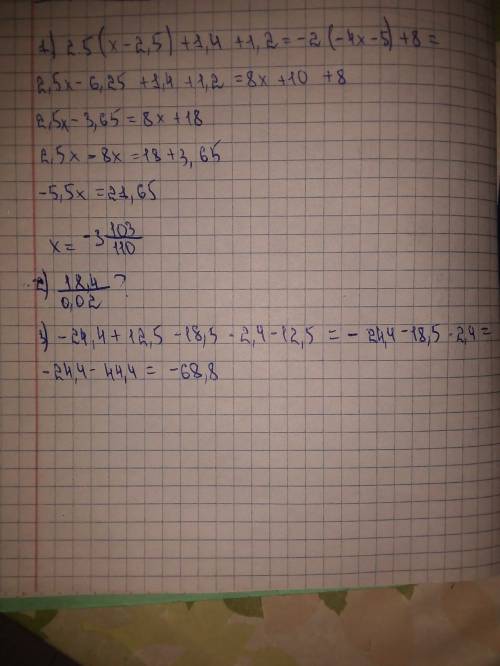 1) 2,5(x-2,5)+1,4+1,2=-2(-4x-5)+8=
2,5x-6,25+1,4+1,2=8x+10+8
2,5x-3,65=8x+18
2,5x-8x=18+3,65
-5,5x=21,65
x=-3 103/110
2) 18,4/0,02 ?
3) -24,4+12,5-18,5-2,4-12,5=-24,4-18,5·2,4=
-24,4-44,4=-68,8